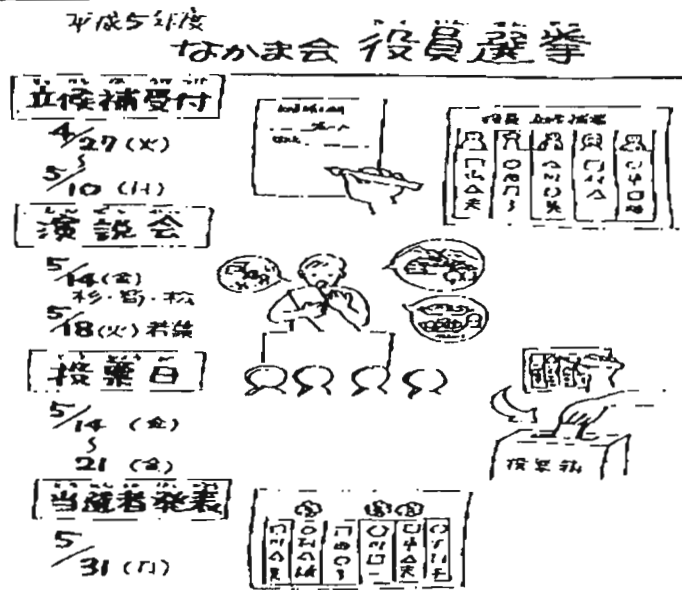 平成5年度
なかま会 役員選挙
立候補受付
4/27(火)
〜
5/10(月)
演説会
5/14(金)
杉・菊・松
5/18(火) 若葉
投票日
5/14 (金)
〜
21 (金)
当選者発表
5/31 (月)
役員 立候補者
投票箱